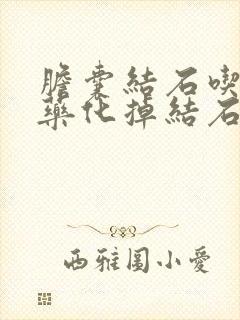 膽囊結石喫
藥化掉結石
西雅圖小愛